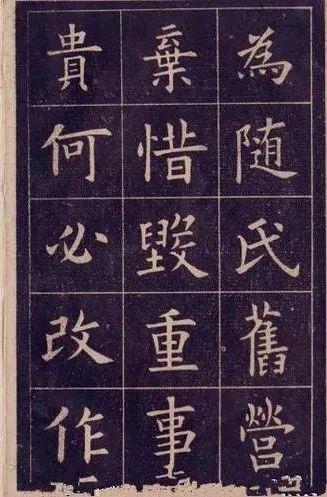 為随氏舊營
棄惜毀重事
貴何必改作